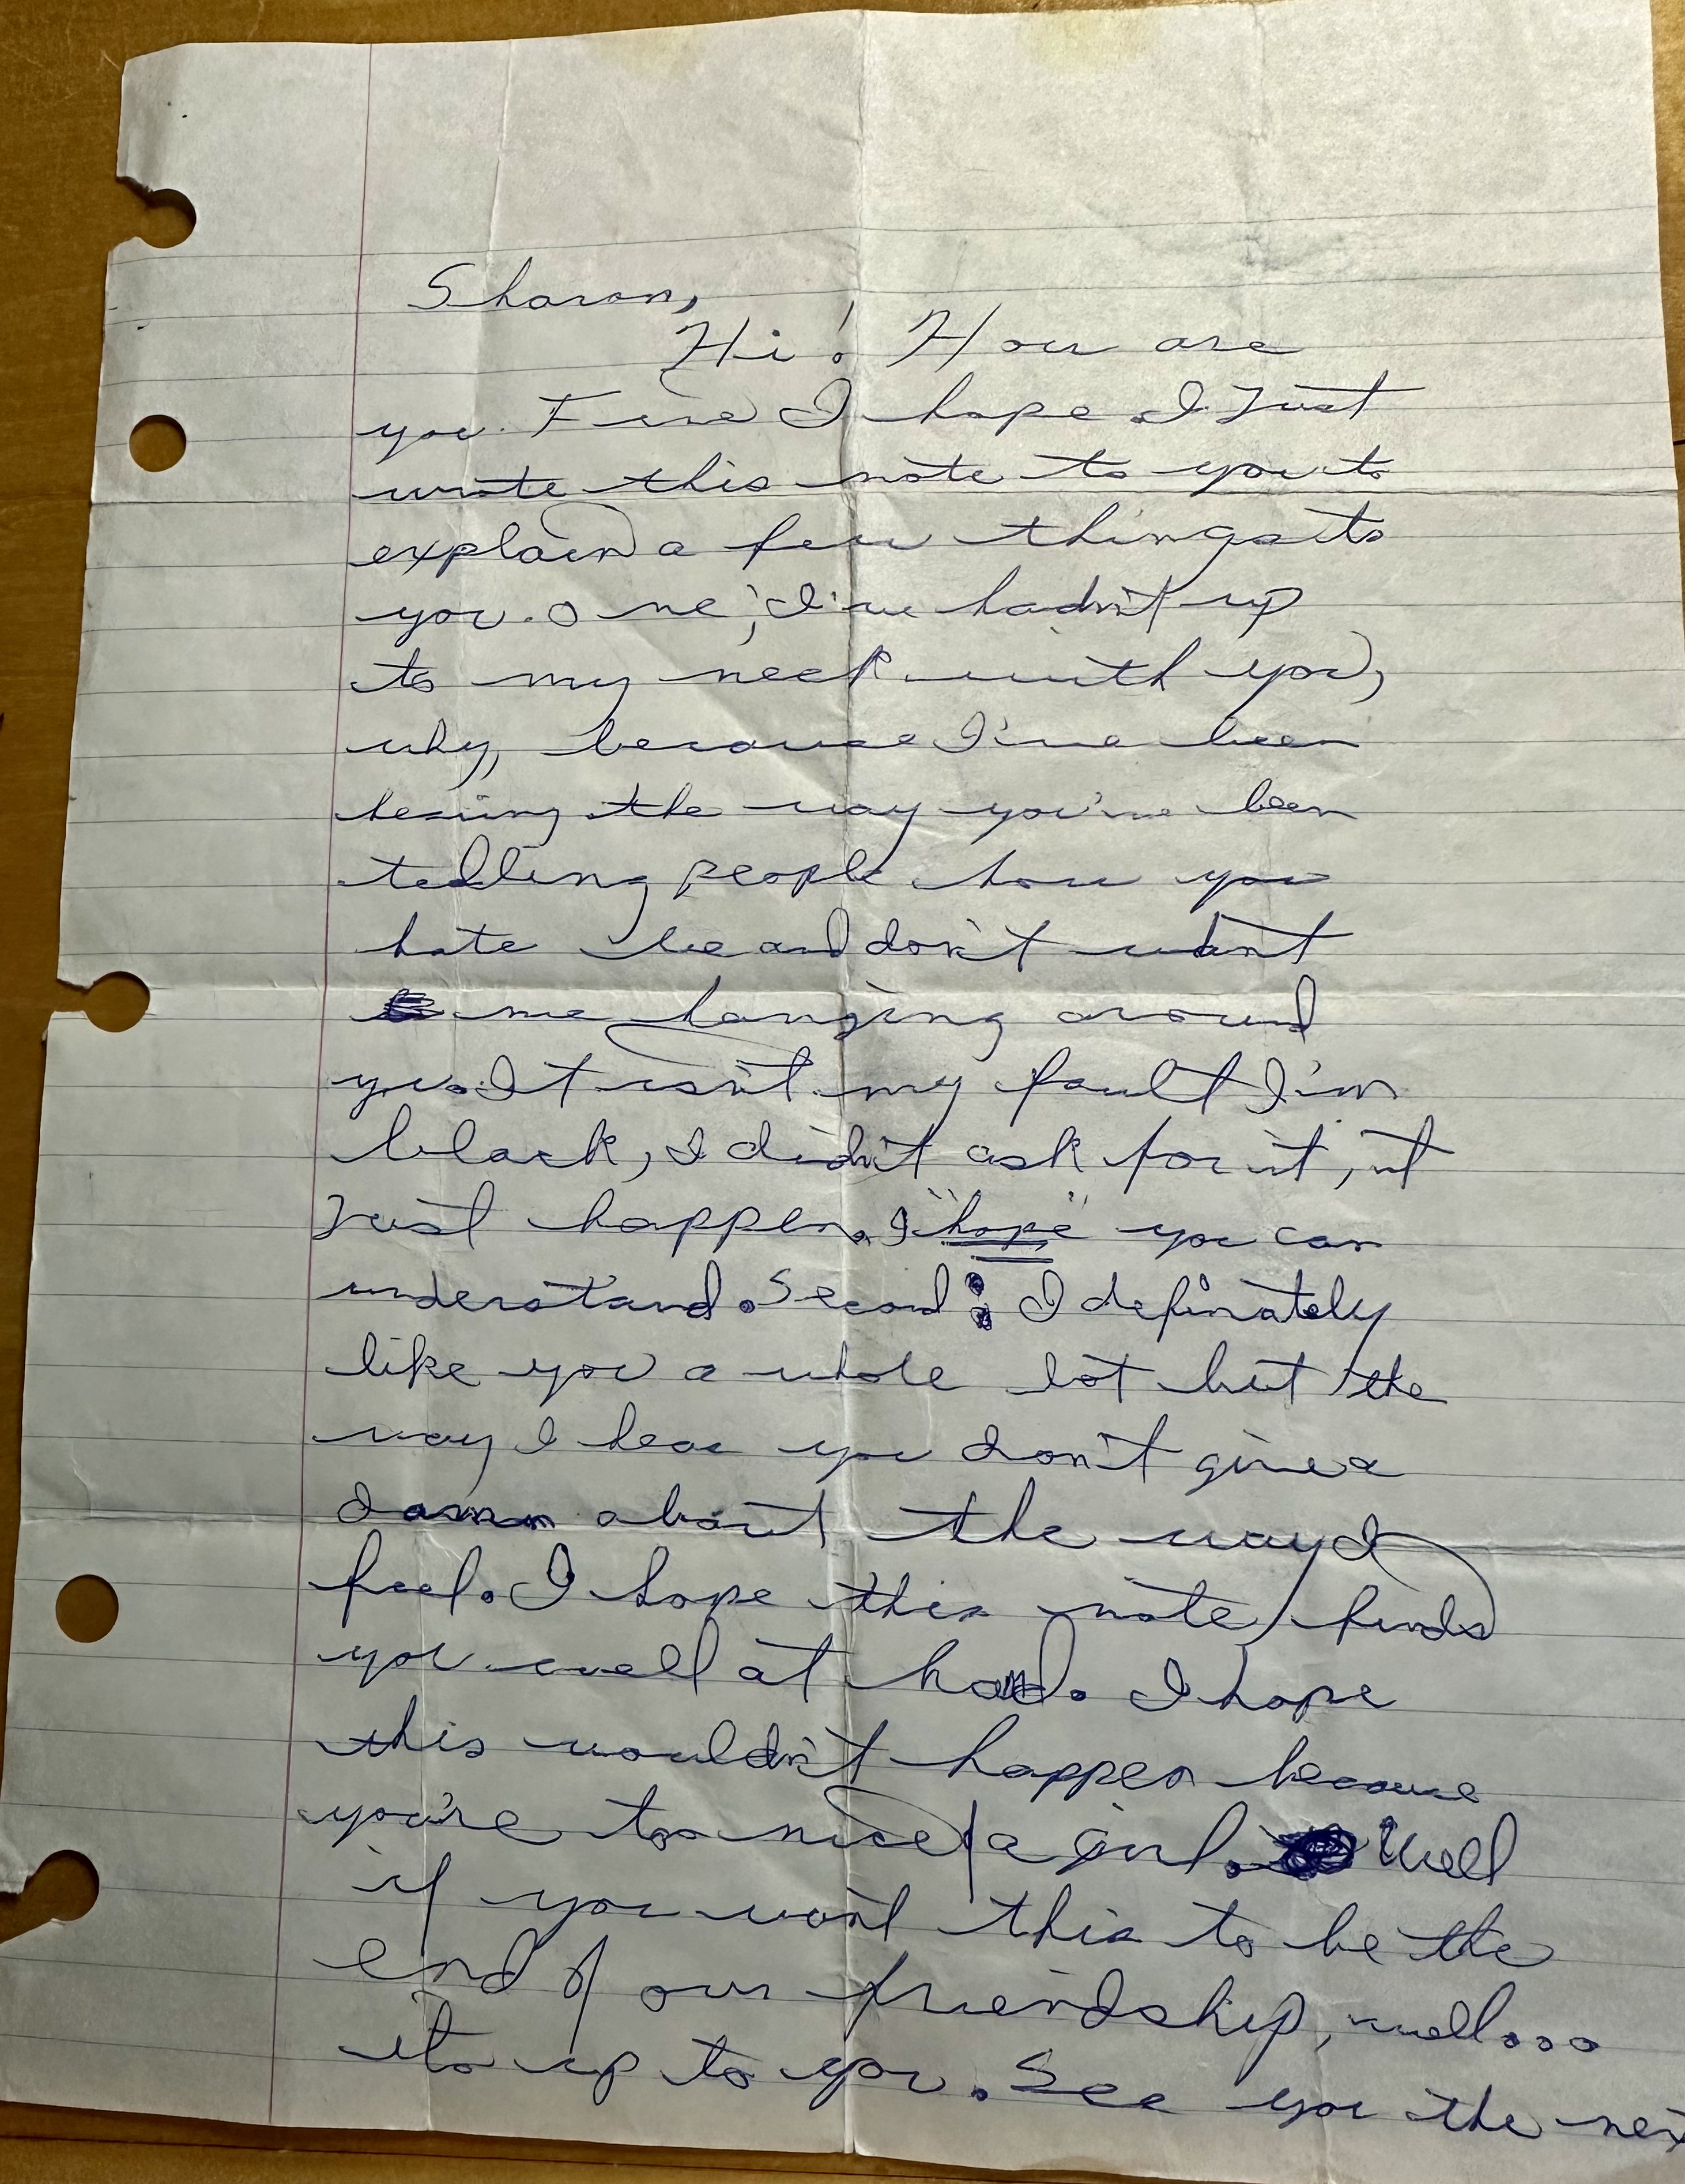 Sharon,
Hi! How are
you. Fine I hope. I Just
wrote this note to you to
explain a few things to
you. One; I've hadn't up
to my neck with you,
why, because I've been
hearing the way you've been
telling people how you
hate me and don't want
me hanging around
you. It isn't my fault I'm
black, I didn't ask for it, it
Just happen. I "hope" you can
understand. Second: I definately
like you a whole lot but the
way I hear you don't give a
damn about the way I
feel. I hope this note finds
you well at hand. I hope
this wouldn't happen because
you're too nice a girl. Well
if you want this to be the
end of our friendship, well...
its up to you. See you the next